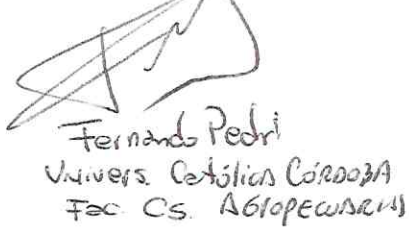 Fernando Pedri
Univers. Católica CÓRDOBA
Fac Cs. AGROPECUARIAS